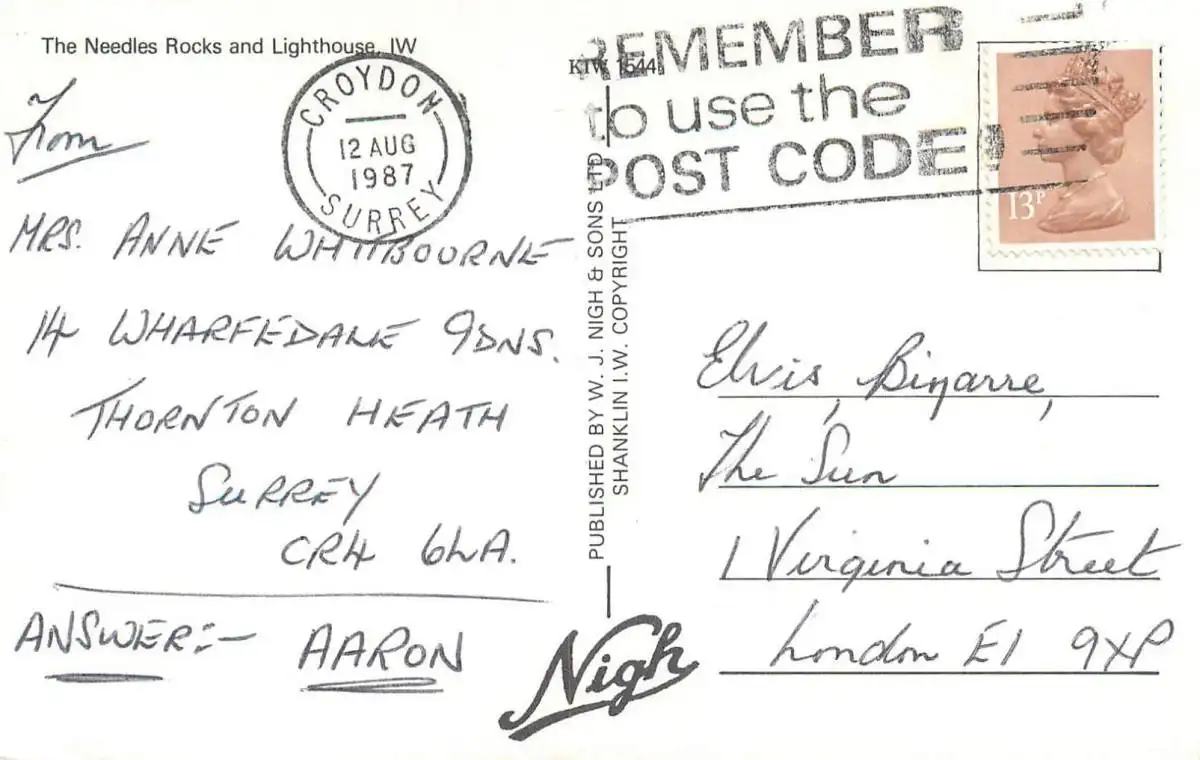 The Needles Rocks and Lighthouse, IW
KIW 1544
CROYDON
12 AUG
1987
SURREY
REMEMBER
to use the
POST CODE!
13P
From
MRS. ANNE WHITBOURNE
14 WHARFEDALE GDNS.
THORNTON HEATH
SURREY
CR4 6LA.
ANSWER:- AARON
PUBLISHED BY W. J. NIGH & SONS LTD
SHANKLIN I.W. COPYRIGHT
Nigh
Elvis, Bizarre,
The Sun
1 Virginia Street
London E1 9XP